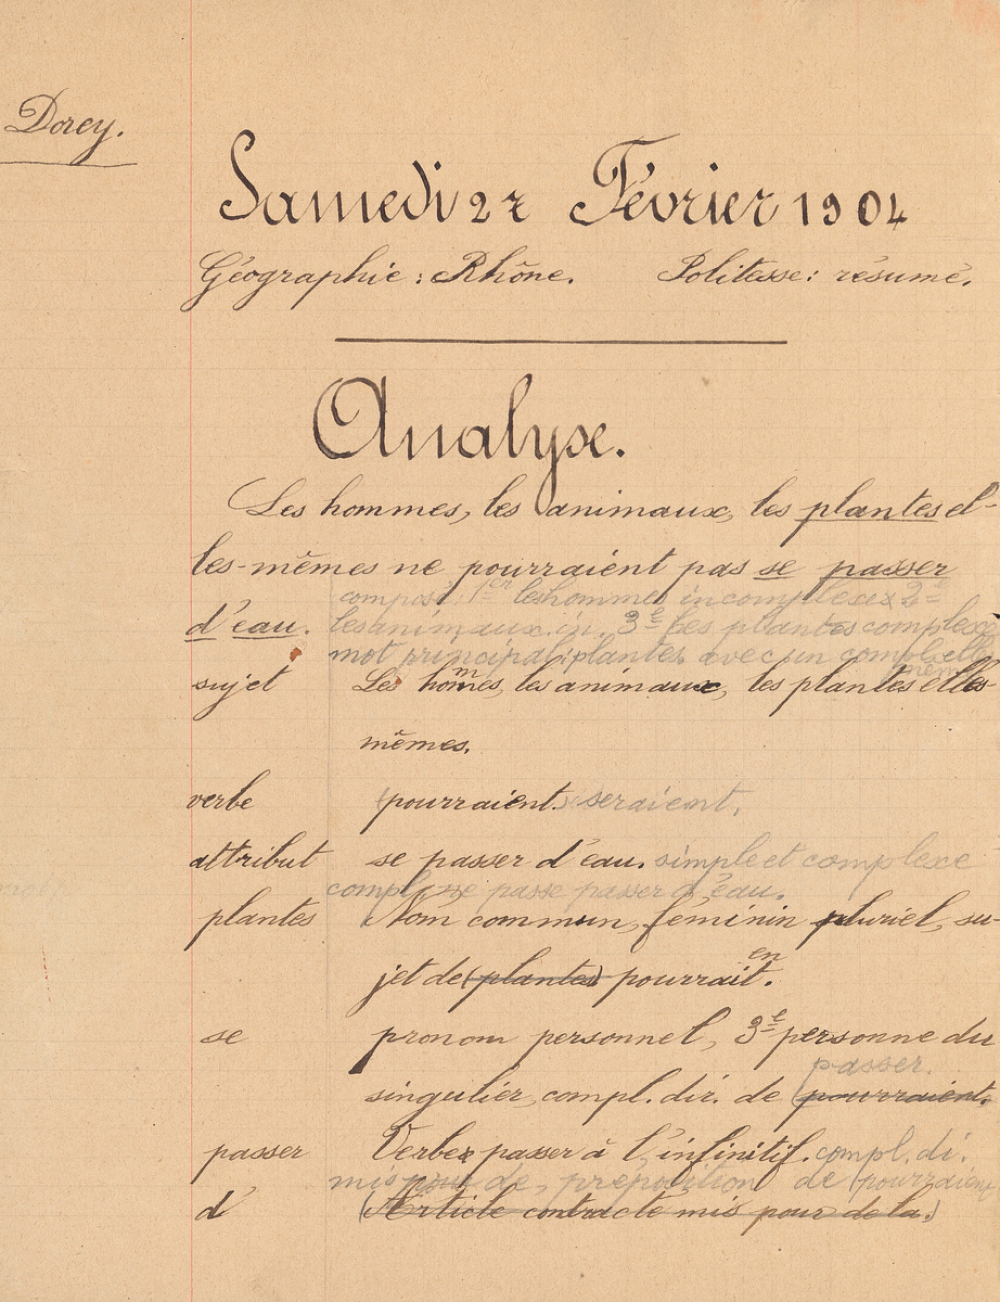 Dorey.
Samedi 27 Février 1904
Géographie : Rhône. Politesse : résumé.
Analyse.
Les hommes, les animaux, les plantes el-
les-mêmes ne pourraient pas se passer
composé : 1er les hommes incomplexe 2e
d'eau. les animaux. in. 3e les plantes complexe
mot principal : plantes avec un compl. elles
mêmes
sujet Les hommes, les animaux, les plantes elles-
mêmes.
verbe (pourraient.) seraient.
attribut se passer d'eau. simple et complexe
compl. ne passe passer d'eau.
plantes Nom commun, féminin pluriel, su-
jet de (plantes) pourraient.
se pronom personnel, 3e personne du
passer.
singulier, compl. dir. de (pourraient.
passer Verbe passer à l'infinitif. compl. di.
mis pour de, préposition de pourraient
d' (Article contracté mis pour de la.)